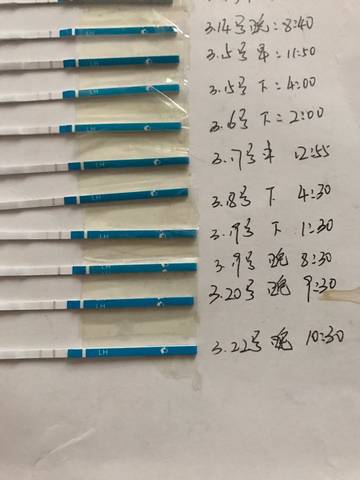 3.14号晚:8:40
3.15号早:11:50
LH 3.15号下:4:00
LH 3.16号下:2:00
LH 3.17号 12:55
LH 3.18号 下 4:30
LH 3.19号 下 1:30
LH 3.19号 晚 8:30
LH 3.20号 晚 9:30
LH 3.22号 晚 10:30